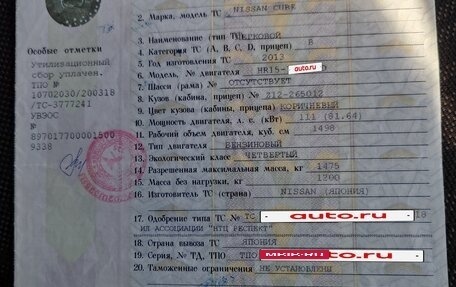 Особые отметки
Утилизационный
сбор уплачен.
ТПО №
10702030/200318
/ТС-3777241
УВЭОС
№
897017700001500
9338
2. Марка, модель ТС NISSAN CUBE
3. Наименование (тип ТС)
4. Категория ТС (А, В, С, D, прицеп) В
5. Год изготовления ТС 2013
6. Модель, № двигателя HR15- auto.ru
7. Шасси (рама) № ОТСУТСТВУЕТ
8. Кузов (кабина, прицеп) № Z12-265012
9. Цвет кузова (кабины, прицепа) КОРИЧНЕВЫЙ
10. Мощность двигателя, л. с. (кВт) 111 (81.64)
11. Рабочий объем двигателя, куб. см 1498
12. Тип двигателя БЕНЗИНОВЫЙ
13. Экологический класс ЧЕТВЕРТЫЙ
14. Разрешенная максимальная масса, кг 1475
15. Масса без нагрузки, кг 1200
16. Изготовитель ТС (страна) NISSAN (ЯПОНИЯ)
17. Одобрение типа ТС № ТС auto.ru 18
ИЛ АССОЦИАЦИИ "НТЦ РЕСПЕКТ"
18. Страна вывоза ТС ЯПОНИЯ
19. Серия, № ТД, ТПО ТПО auto.ru
20. Таможенные ограничения НЕ УСТАНОВЛЕНЫ